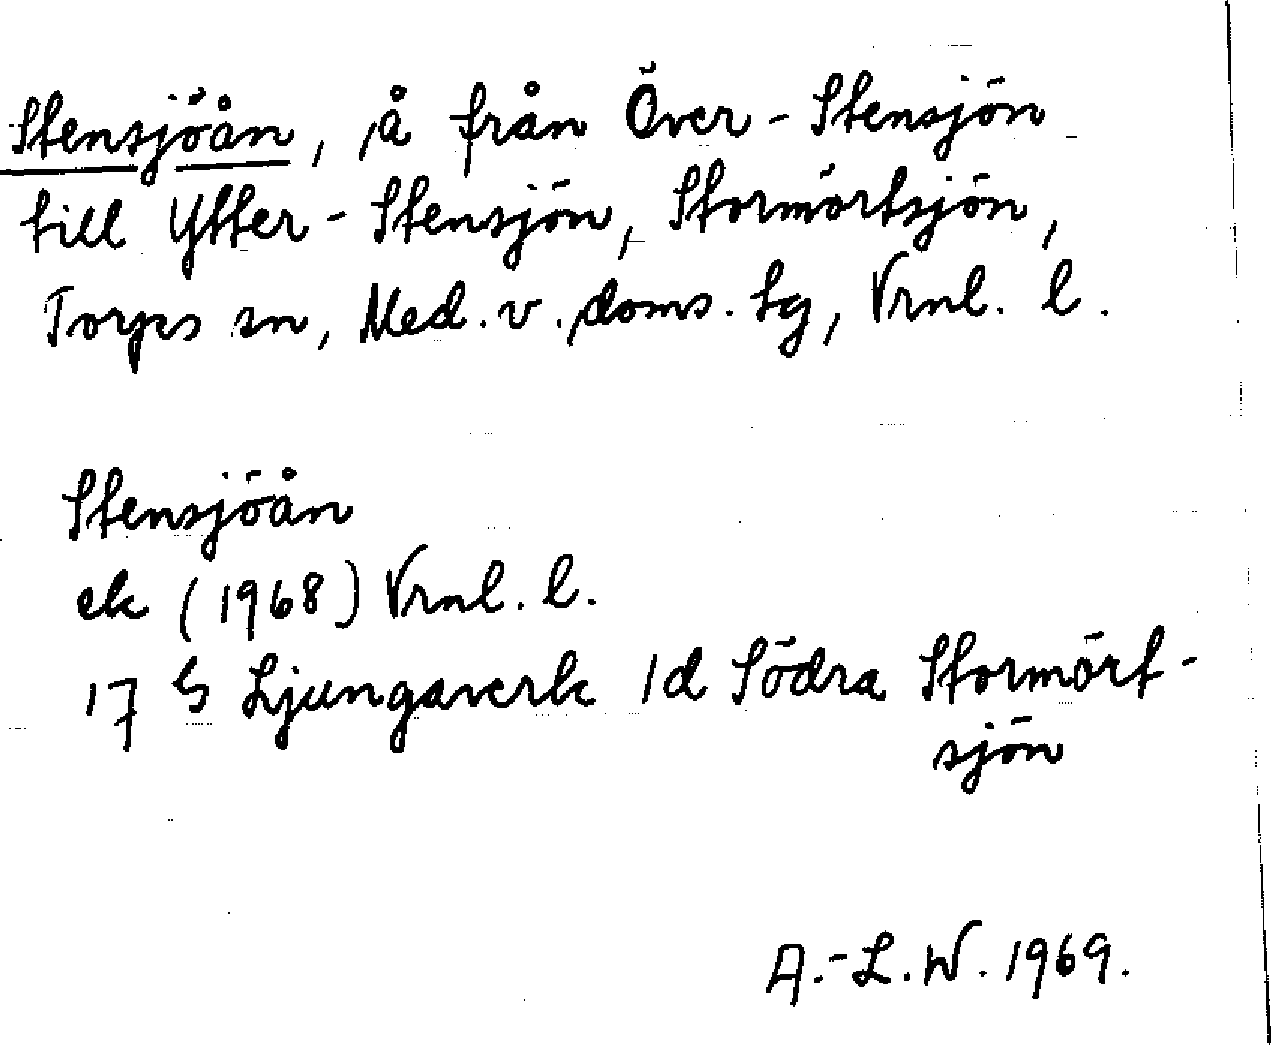 Stensjöån, å från Över-Stensjön
till Ytter-Stensjön, Stormörtsjön,
Torps sn, Med. v. doms. tg, Vrnl. l.
Stensjöån
ek (1968) Vrnl. l.
17 G Ljungaverk 1d Södra Stormört-
sjön
A.-L.W. 1969.